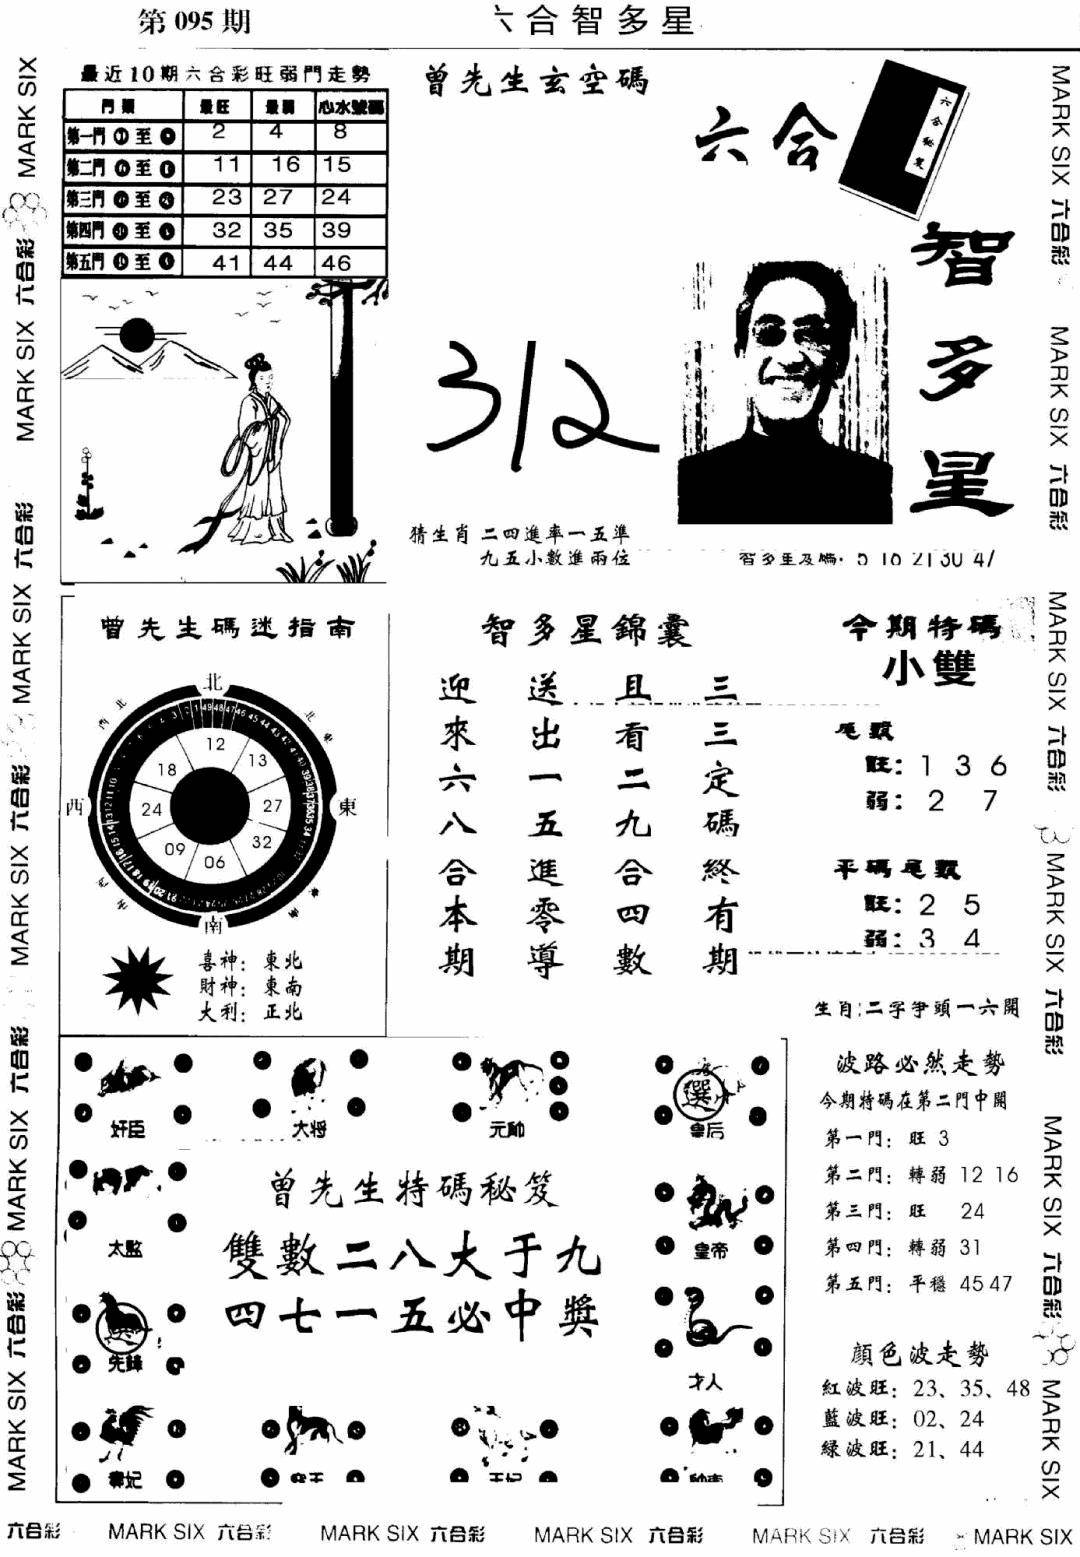 第 095 期
六合智多星
最近10期六合彩旺弱門走勢
門類 最旺 最弱 心水號碼
第一門 至 2 4 8
第二門 至 11 16 15
第三門 至 23 27 24
第四門 至 32 35 39
第五門 至 41 44 46
曾先生玄空碼
312
猜生肖 二四進率一五準
九五小數進兩位
六合
六合秘笈
智多星
曾先生碼迷指南
北
東
南
西
12
13
27
32
06
09
24
18
喜神：東北
財神：東南
大利：正北
智多星錦囊
三三定碼終有期
且看二九合四數
送出一五進零導
迎來六八合本期
今期特碼
小雙
尾數
旺：1 3 6
弱：2 7
平碼尾數
旺：2 5
弱：3 4
生肖：二字爭頭一六開
波路必然走勢
今期特碼在第二門中開
第一門：旺 3
第二門：轉弱 12 16
第三門：旺 24
第四門：轉弱 31
第五門：平穩 45 47
顏色波走勢
紅波旺：23、35、48
藍波旺：02、24
綠波旺：21、44
奸臣
大將
元帥
選
皇后
太監
皇帝
先鋒
才人
曾先生特碼秘笈
雙數二八大于九
四七一五必中獎
MARK SIX 六合彩 MARK SIX 六合彩 MARK SIX 六合彩 MARK SIX 六合彩 MARK SIX 六合彩 MARK SIX
MARK SIX 六合彩 MARK SIX 六合彩 MARK SIX 六合彩 MARK SIX 六合彩 MARK SIX 六合彩 MARK SIX
六合彩 MARK SIX 六合彩 MARK SIX 六合彩 MARK SIX 六合彩 MARK SIX 六合彩 MARK SIX